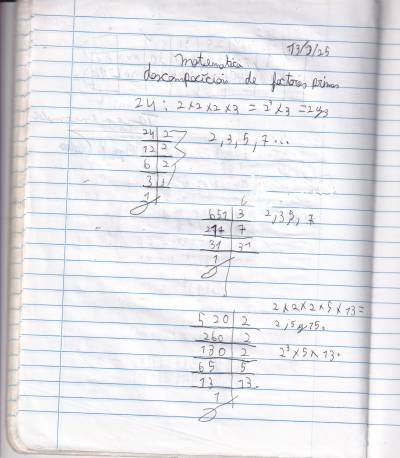 13/9/25
Matematica
descomposición de factores primos
24: 2x2x2x3 = 2³x3 = 2y3
24 | 2
12 | 2
6 | 2
3 |
1
2, 3, 5, 7...
651 | 3
217 | 7
31 | 31
1
2, 3, 7
520 | 2
260 | 2
130 | 2
65 | 5
13 | 13.
1
2 x 2 x 2 x 5 x 13 =
2³ x 5 x 13.